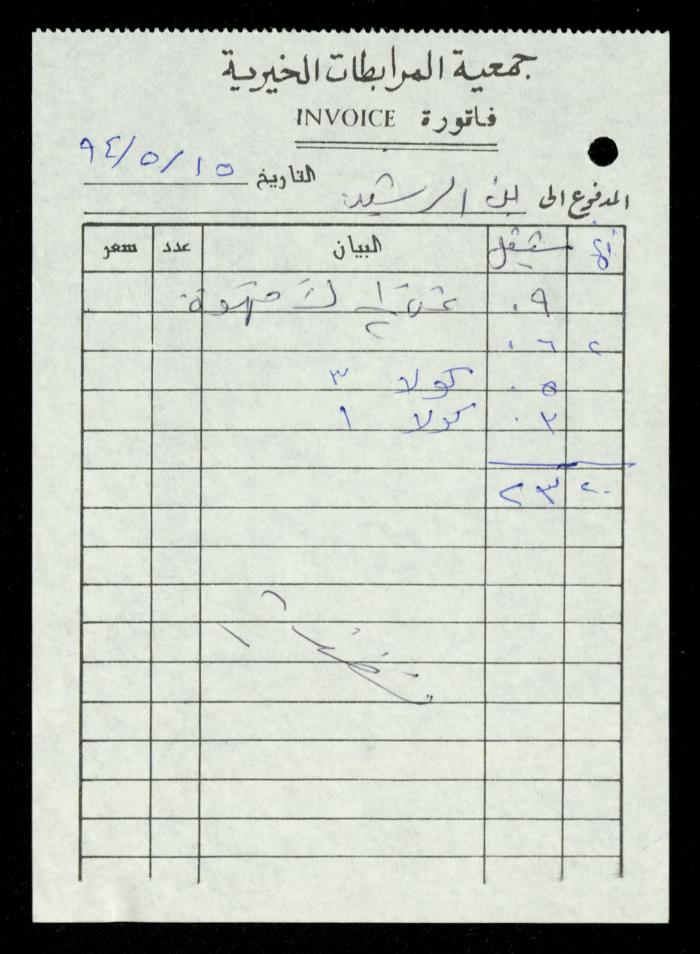 جمعية المرابطات الخيرية
فاتورة INVOICE
التاريخ ١٥/٥/٩٤
المدفوع الى بن الرشيد
شيقل البيان عدد سعر
٠٩ ثمن ١/٢ ك قهوة
٢ ٠٦
٠٥ كولا ٣
٠٣ كولا ١
٢٠ ٢٣